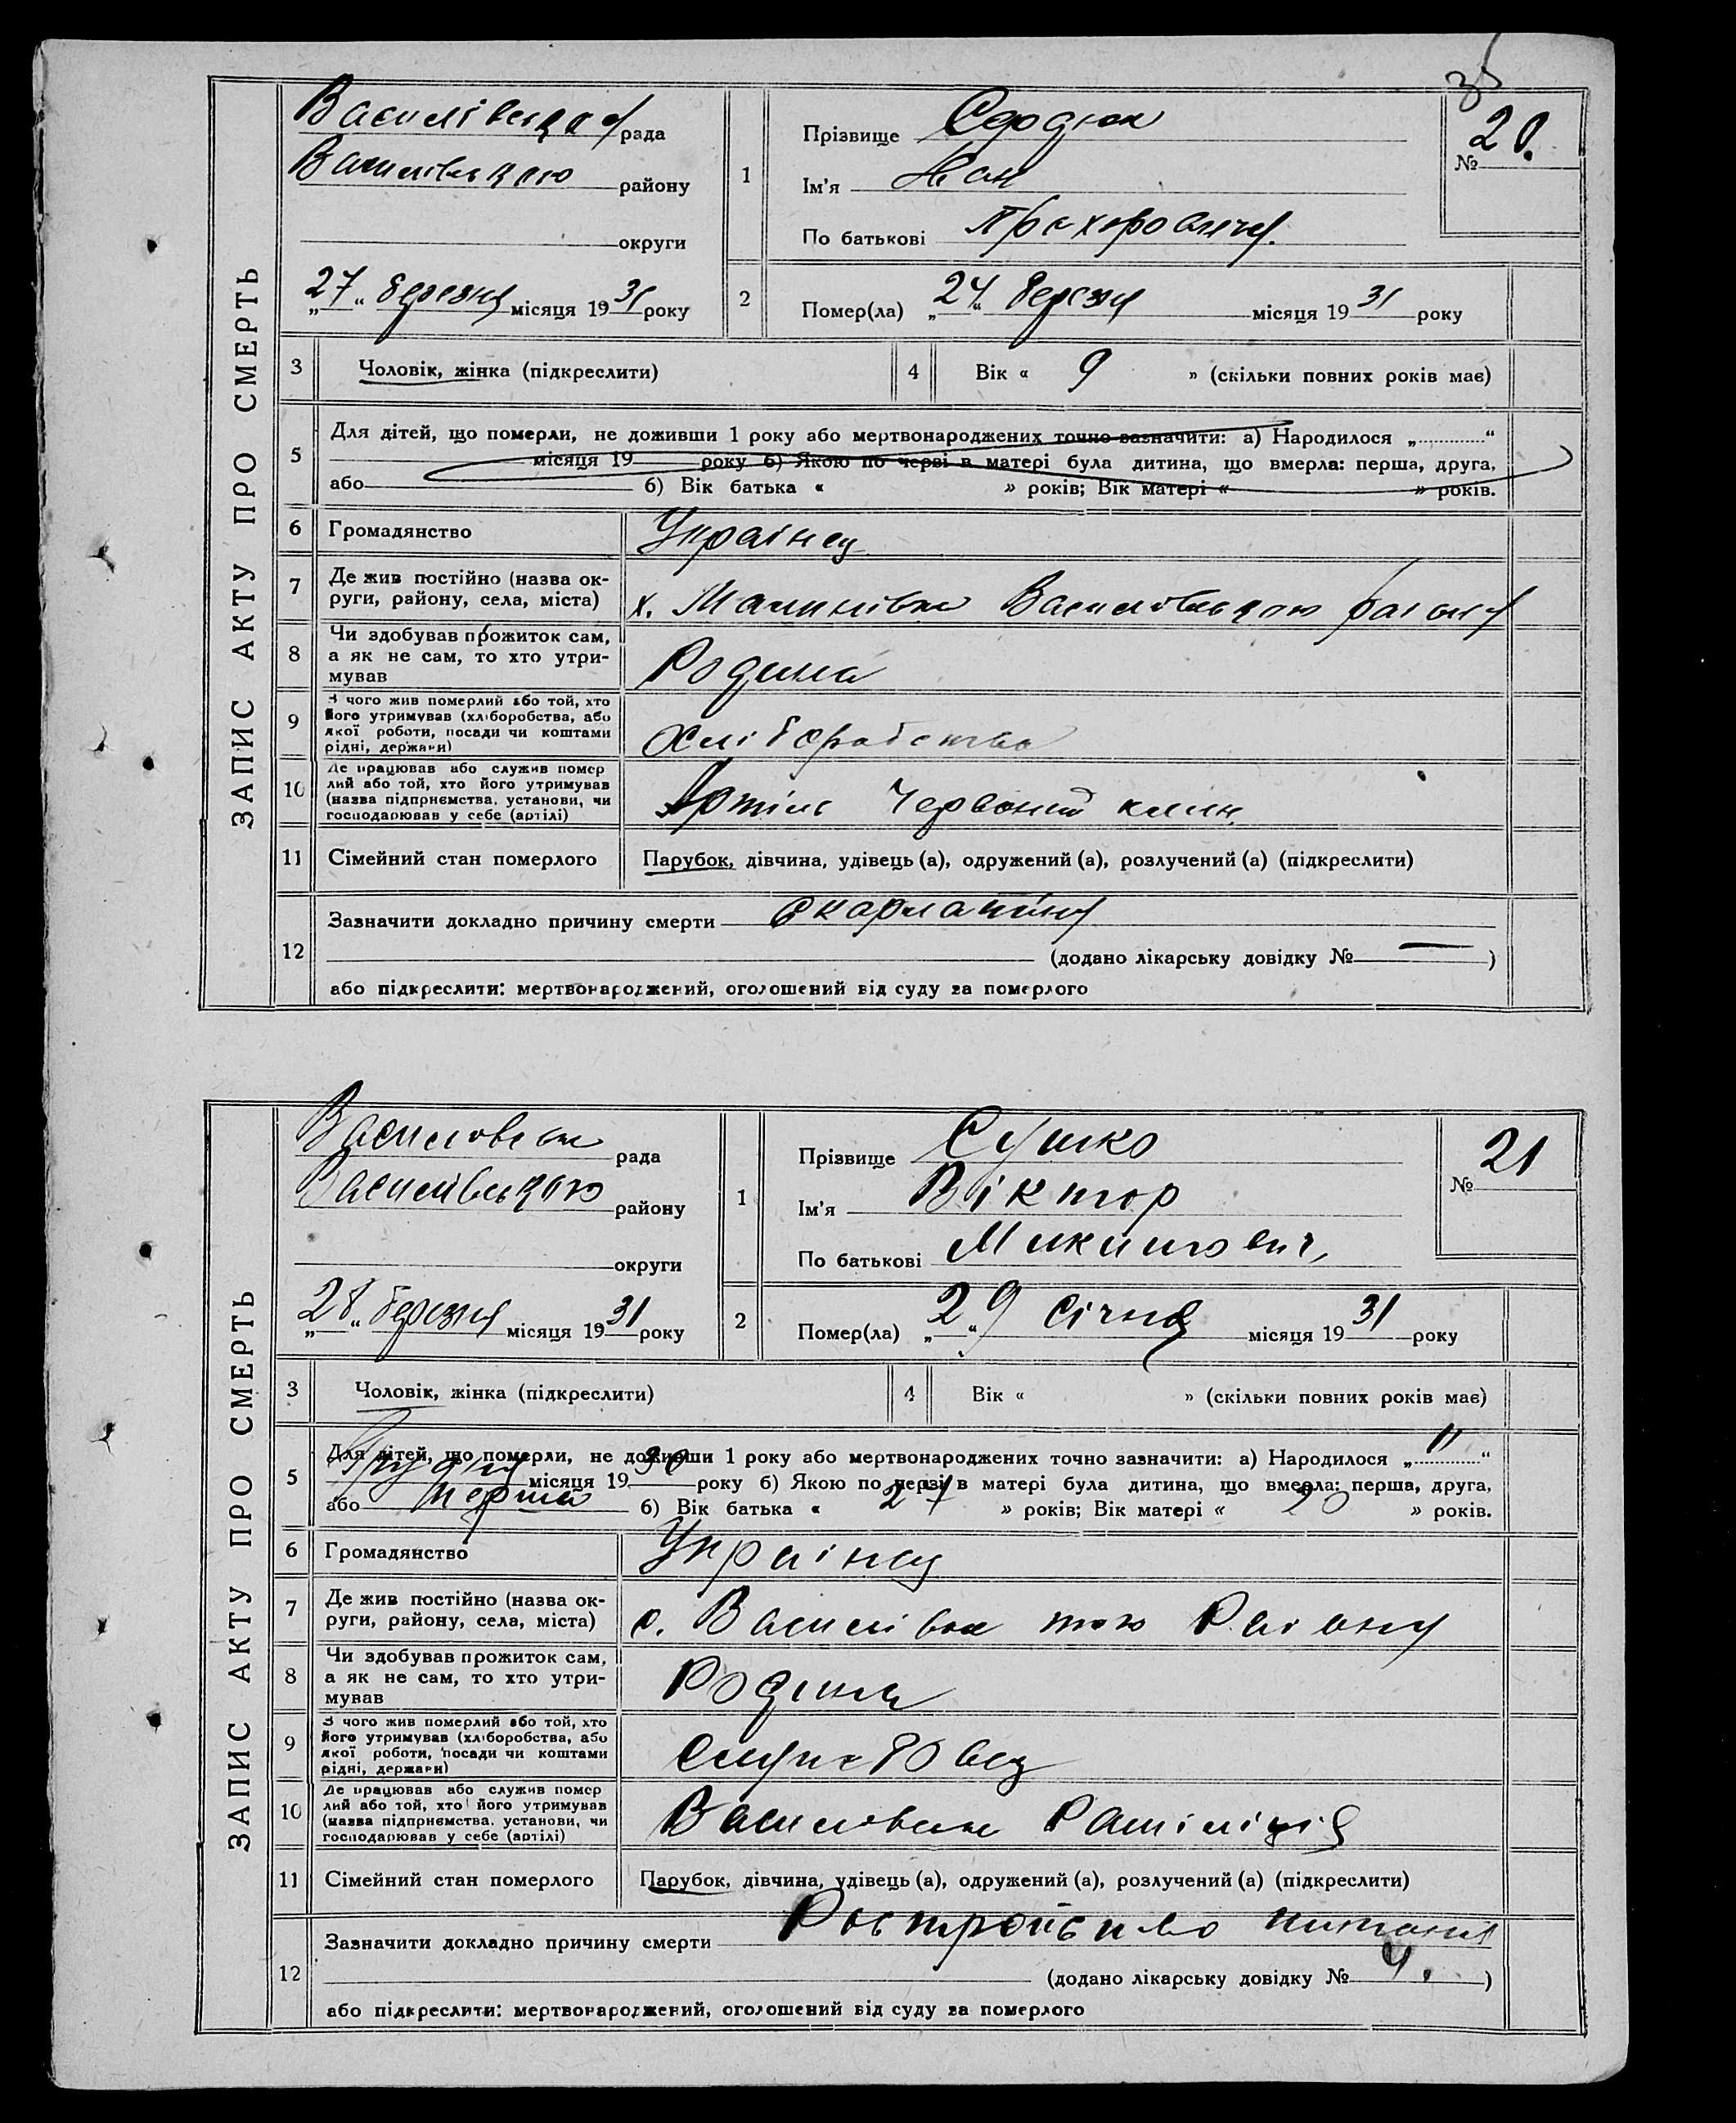 35
ЗАПИС АКТУ ПРО СМЕРТЬ
Василівська рада
Василівського району
округи
„27“ березня місяця 1931 року
1
Прізвище Сердюк
Ім'я
По батькові Прохорович
№ 20.
2
Помер(ла) „24“ березня місяця 1931 року
3
Чоловік, жінка (підкреслити)
4
Вік « 9 » (скільки повних років має)
5
Для дітей, що померли, не доживши 1 року або мертвонароджених точно зазначити: а) Народилося „ “
місяця 19 року б) Якою по черзі в матері була дитина, що вмерла: перша, друга,
або б) Вік батька « » років; Вік матері « » років.
6
Громадянство
Українец
7
Де жив постійно (назва ок-
руги, району, села, міста)
х. Малинівка Василівського району
8
Чи здобував прожиток сам,
а як не сам, то хто утри-
мував
Родина
9
З чого жив померлий або той, хто
його утримував (хліборобства, або
якої роботи, посади чи коштами
рідні, держави)
Хліборобство
10
Де працював або служив помер
лий або той, хто його утримував
(назва підприємства, установи, чи
господарював у себе (артілі)
Артіль Червоний клин
11
Сімейний стан померлого
Парубок, дівчина, удівець (а), одружений (а), розлучений (а) (підкреслити)
12
Зазначити докладно причину смерти скарлатина
(додано лікарську довідку № — )
або підкреслити: мертвонароджений, оголошений від суду за померлого
ЗАПИС АКТУ ПРО СМЕРТЬ
рада
Василівського району
округи
„28“ березня місяця 1931 року
1
Прізвище Сушко
Ім'я Віктор
По батькові Микитович
№ 21
2
Помер(ла) „29“ січня місяця 1931 року
3
Чоловік, жінка (підкреслити)
4
Вік « » (скільки повних років має)
5
Для дітей, що померли, не доживши 1 року або мертвонароджених точно зазначити: а) Народилося „11“
грудня місяця 1930 року б) Якою по черзі в матері була дитина, що вмерла: перша, друга,
або перша б) Вік батька « 27 » років; Вік матері « 20 » років.
6
Громадянство
Українец
7
Де жив постійно (назва ок-
руги, району, села, міста)
с. Василівка того Району
8
Чи здобував прожиток сам,
а як не сам, то хто утри-
мував
Родина
9
З чого жив померлий або той, хто
його утримував (хліборобства, або
якої роботи, посади чи коштами
рідні, держави)
Службовец
10
Де працював або служив помер
лий або той, хто його утримував
(назва підприємства, установи, чи
господарював у себе (артілі)
11
Сімейний стан померлого
Парубок, дівчина, удівець (а), одружений (а), розлучений (а) (підкреслити)
12
Зазначити докладно причину смерти Ростройство питания
(додано лікарську довідку № 4. )
або підкреслити: мертвонароджений, оголошений від суду за померлого